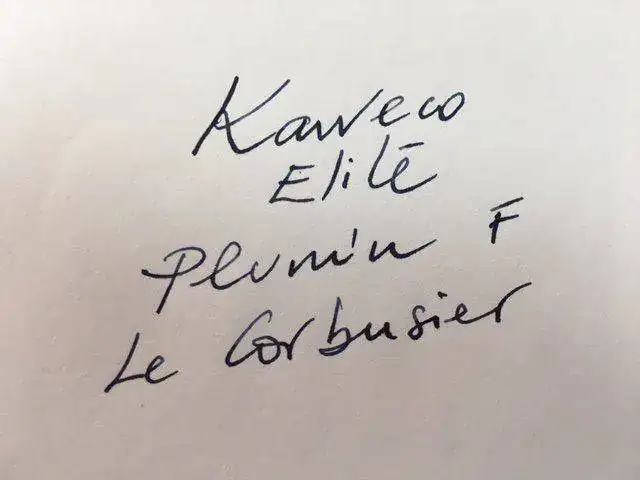 Kaweco
Elite
Plumín F
Le Corbusier